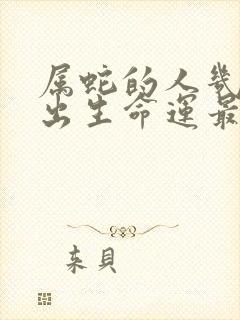 属蛇的人几
出生命运最
来贝